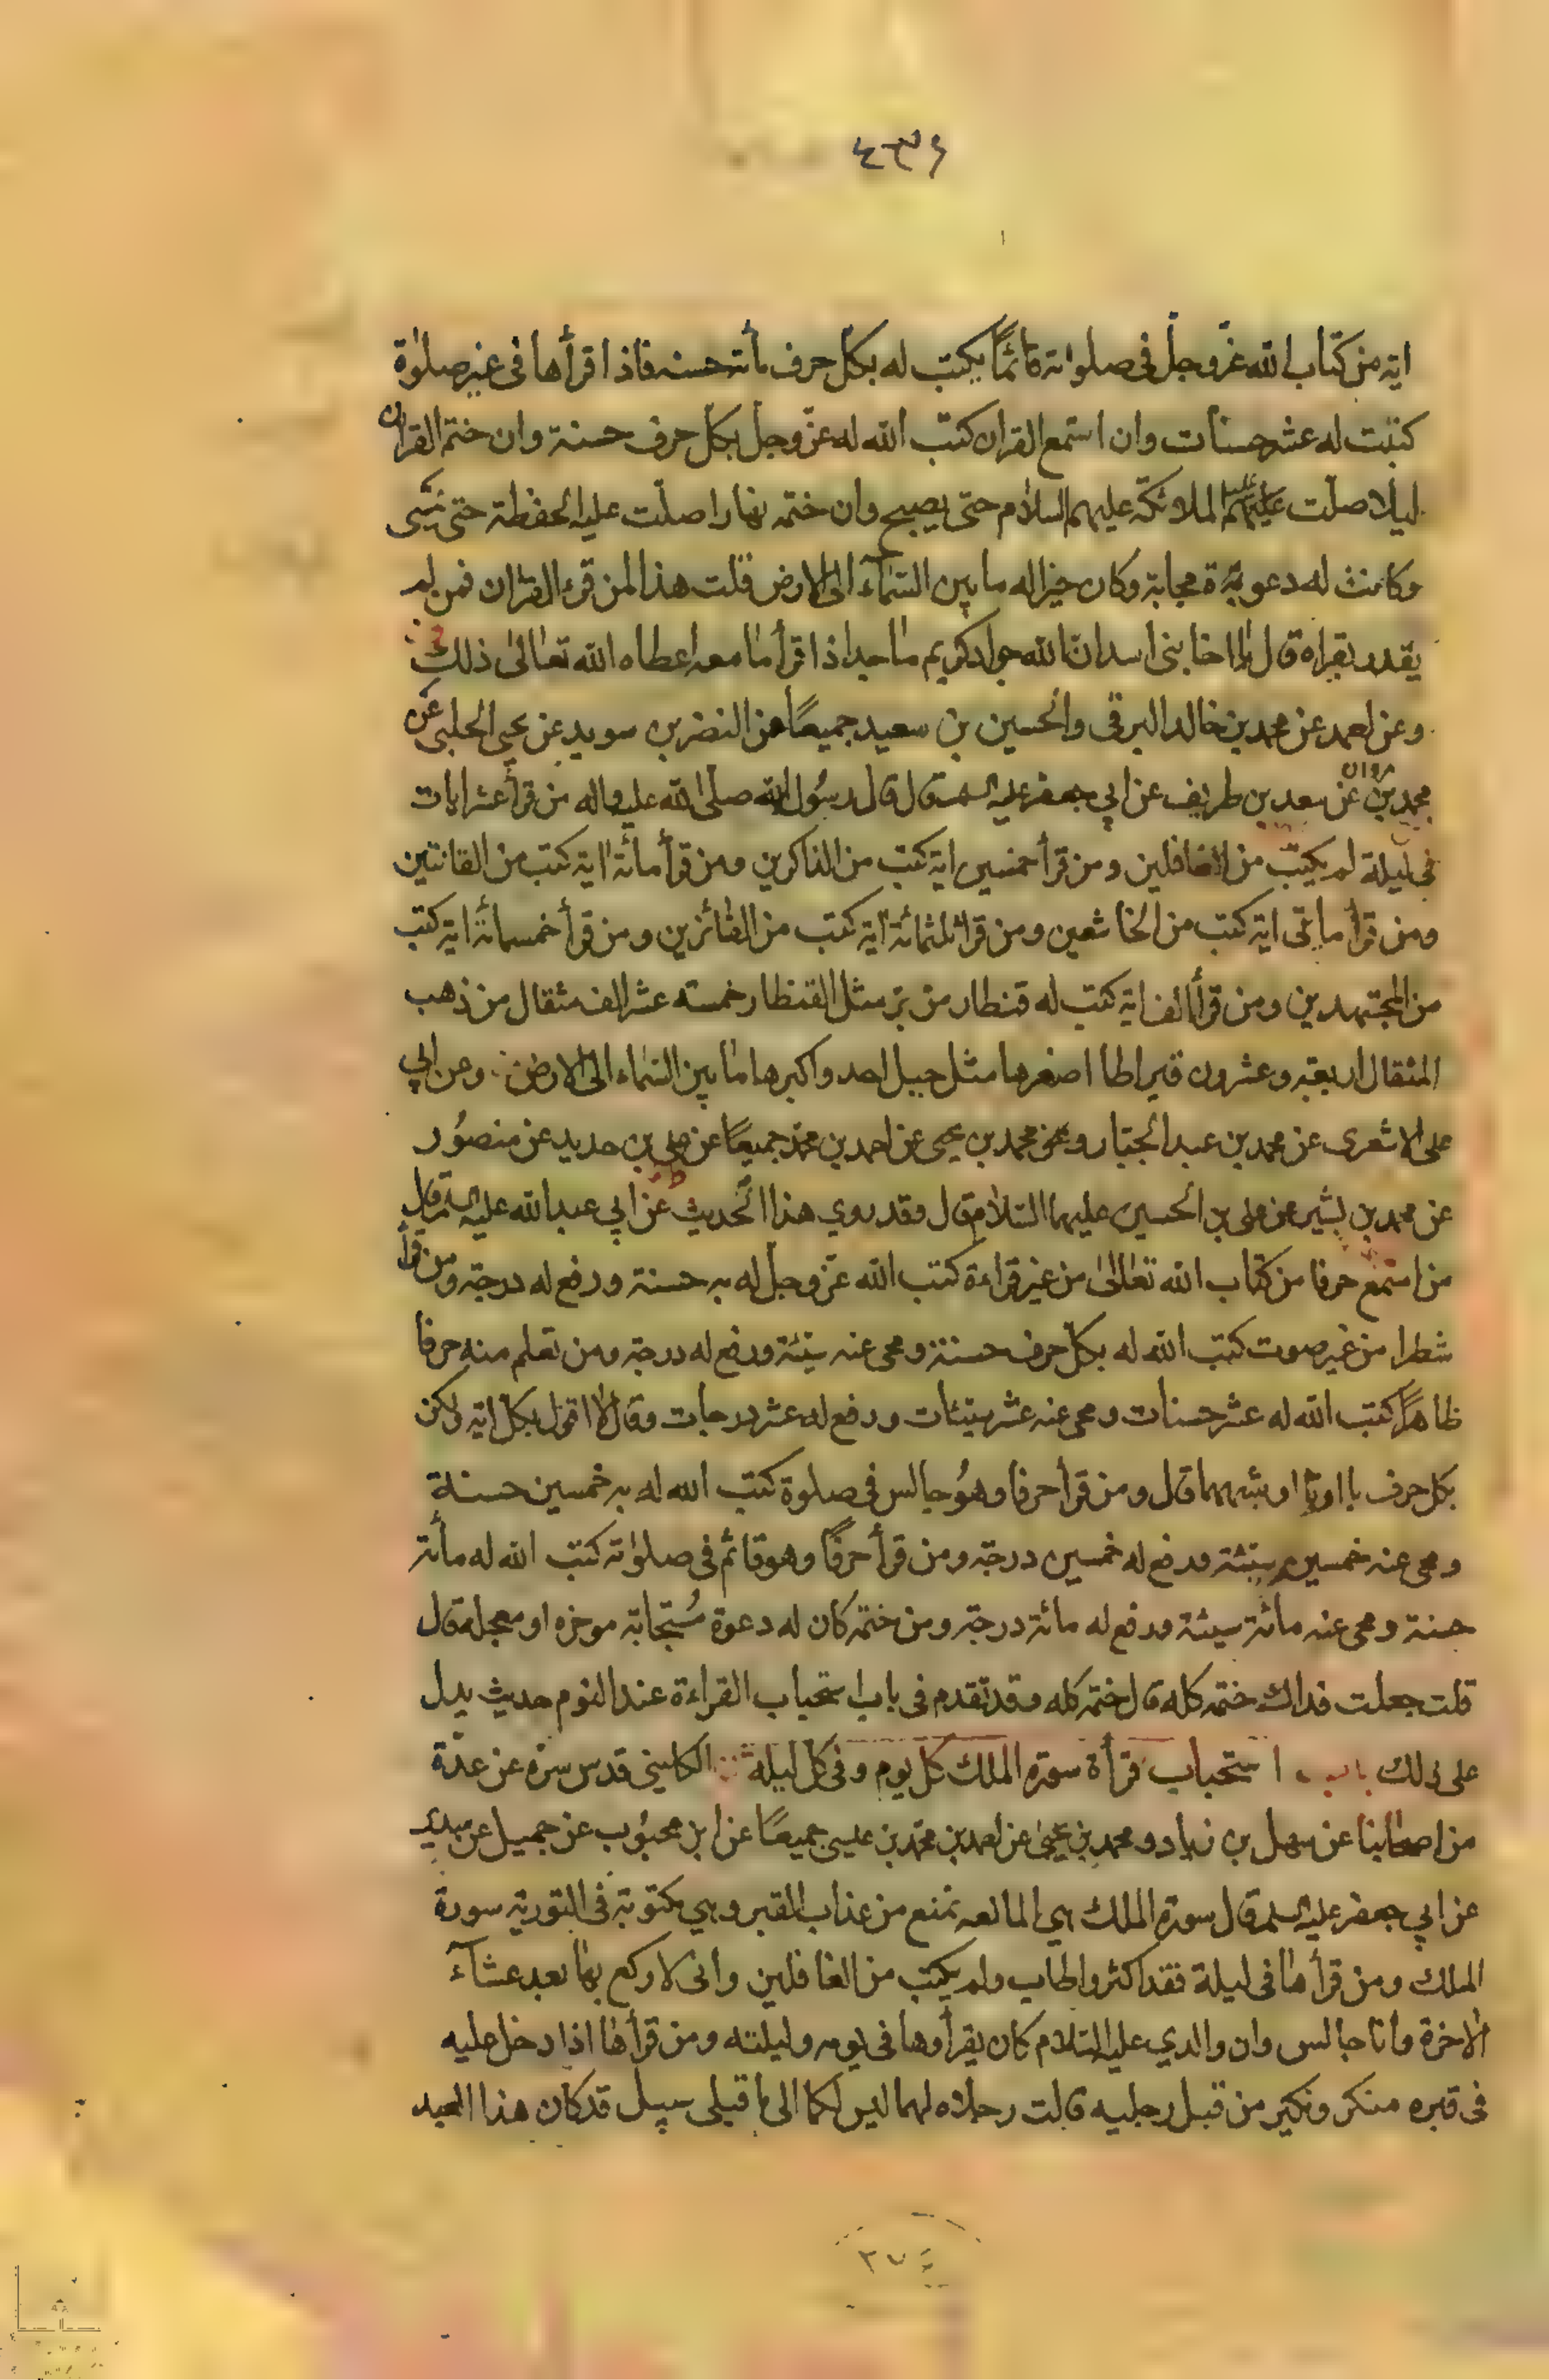 ٤٣٤
اية من كتاب الله عزّوجلّ فى صلواته قائمًا يكتب له بكل حرف مأته حسنه فاذا قرأها فى غير صلوٰة
كتبت له عشر حسنات وان استمع القران كتب الله له عزّوجلّ بكل حرف حسنة وان ختم القران
ليلا صلّت عليه الملائكة عليهم السلام حتى يصبح وان ختمه نهارا صلّت عليه الحفظة حتى يمسى
وكانت له دعوة مجابة وكان خيرا له ما بين السمآء الى الارض قلت هذا لمن قرء القران فمن لم
يقدر يقراه قال يا اخا بنى اسد انّ الله جواد كريم ماجد اذا قرأ ما معه اعطاه الله تعالىٰ ذلك
وعن احمد عن محمد بن خالد البرقى والحسين بن سعيد جميعًا عن النضر بن سويد عن يحيى الحلبى عن
محمد بن مروان عن سعد بن طريف عن ابي جعفر عليه السلم قال قال رسُول الله صلى الله عليه واله من قرأ عشر ايات
فى ليلة لم يكتب من الغافلين ومن قرأ خمسين اية كتب من الذاكرين ومن قرأ مأئة اية كتب من القانتين
ومن قرأ مأتى اية كتب من الخاشعين ومن قرأ ثلثمائة اية كتب من الفائزين ومن قرأ خمسمائة اية كتب
من المجتهدين ومن قرأ الف اية كتب له قنطار من برّ مثل القنطار خمسه عشر الف مثقال من ذهب
المثقال اربعة وعشرون قيراطا اصغرها مثل جبل احد واكبرها ما بين السماء الى الارض وعن ابي
على الاشعرى عن محمد بن عبد الجبّار وعن محمد بن يحيى عن احمد بن محمّد جميعًا عن على بن حديد عن منصُور
عن محمد بن بشير عن على بن الحسين عليهما السّلام قال وقد روي هذا الحديث عن ابي عبد الله عليه السلم قال
من استمع حرفا من كتاب الله تعالىٰ من غير قراءة كتب الله عزّوجل له به حسنة ورفع له درجة ومن قرأ
شطرا من غير صوت كتب الله له بكل حرف حسنة ومحى عنه سيّئة ورفع له درجة ومن تعلم منه حرفا
ظاهرًا كتب الله له عشر حسنات ومحى عنه عشر سيّئات ورفع له عشر درجات وقال لا اقول بكل اية ولكن
بكل حرف با او تا او شبههما قال ومن قرأ حرفا وهُو جالس فى صلوة كتب الله له به خمسين حسنة
ومحى عنه خمسين سيئة ورفع له خمسين درجة ومن قرأ حرفًا وهو قائم فى صلوٰته كتب الله له مأئة
حسنة ومحى عنه مائة سيئة ورفع له مائة درجة ومن ختمه كان له دعوة مُستجابة موخره او معجله قال
قلت جعلت فداك ختمه كله قال ختمه كله وقد تقدم فى باب استحباب القراءة عند النوم حديث يدل
على ذلك باب استحباب قرأة سورة الملك كل يوم وفى كل ليلة الكلينى قدس سرّه عن عدّة
من اصحابنا عن سهل بن زياد ومحمد بن يحيىٰ عن احمد بن محمّد بن عيسى جميعًا عن ابن محبُوب عن جميل عن سدير
عن ابي جعفر عليه السلم قال سورة الملك هي المانعه تمنع من عذاب القبر وهي مكتوبة فى التورية سورة
الملك ومن قرأها فى ليلة فقد اكثر واطاب ولم يكتب من الغافلين وانى لاركع بها بعد عشآء
الاخرة وانا جالس وان والدي عليه السّلام كان يقرأوها فى يومه وليلته ومن قرأها اذا دخل عليه
فى قبره منكر ونكير من قبل رجليه قالت رجلاه لهما ليس لكما الى ما قبلى سبيل قد كان هذا العبد